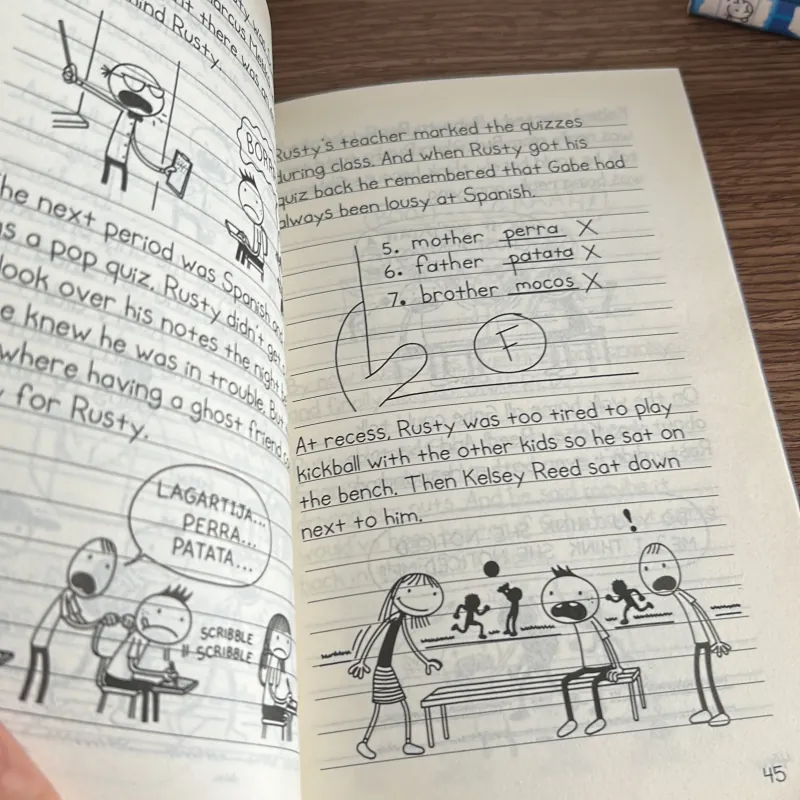 ty was
arcus Me
t there was an
ind Rusty.
BOR
he next period was Spanish, and
as a pop quiz. Rusty didn't get
look over his notes the night
e knew he was in trouble. But
where having a ghost friend
for Rusty.
LAGARTIJA...
PERRA...
PATATA...
SCRIBBLE
SCRIBBLE
Rusty's teacher marked the quizzes
during class. And when Rusty got his
quiz back he remembered that Gabe had
always been lousy at Spanish.
5. mother perra X
6. father patata X
7. brother mocos X
F
At recess, Rusty was too tired to play
kickball with the other kids so he sat on
the bench. Then Kelsey Reed sat down
next to him.
!
45